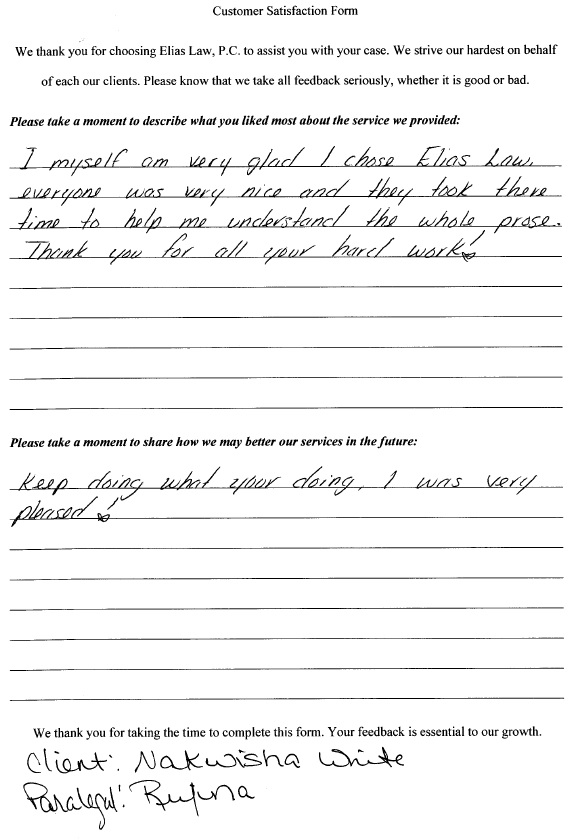 Customer Satisfaction Form
We thank you for choosing Elias Law, P.C. to assist you with your case. We strive our hardest on behalf
of each our clients. Please know that we take all feedback seriously, whether it is good or bad.
Please take a moment to describe what you liked most about the service we provided:
I myself am very glad I chose Elias Law,
everyone was very nice and they took there
time to help me understand the whole prose.
Thank you for all your hard work!
Please take a moment to share how we may better our services in the future:
Keep doing what your doing, I was very
pleased!
We thank you for taking the time to complete this form. Your feedback is essential to our growth.
Client: Nakwisha White
Paralegal: Rufina